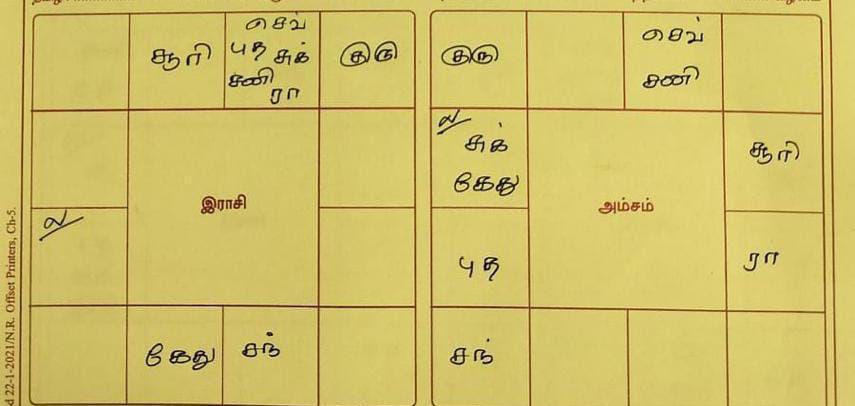 சூரி
செவ்
புத சுக்
சனி
ரா
குரு
ல
இராசி
கேது
சந்
குரு
செவ்
சனி
ல
சுக்
கேது
சூரி
அம்சம்
புத
ரா
சந்
d 22-1-2021/N.R. Offset Printers, Ch-5.